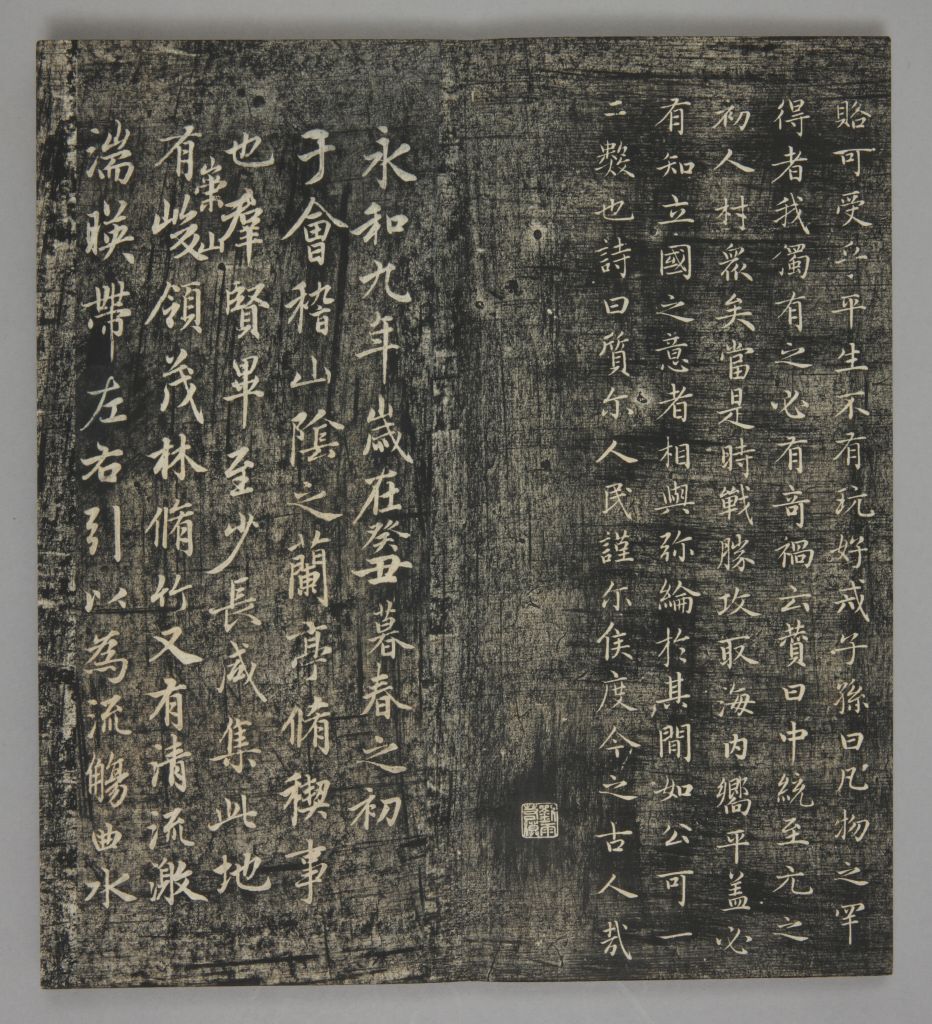 賂可受乎平生不有玩好戒子孫曰凡物之罕
得者我獨有之必有奇禍云贊曰中統至元之
初人材眾矣當是時戰勝攻取海內嚮平蓋必
有知立國之意者相與弥綸於其間如公可一
二數也詩曰質尔人民謹尔侯度今之古人哉
永和九年歲在癸丑暮春之初
于會稽山陰之蘭亭脩稧事
也羣賢畢至少長咸集此地
有崇山峻領茂林脩竹又有清流激
湍暎帶左右引以為流觴曲水